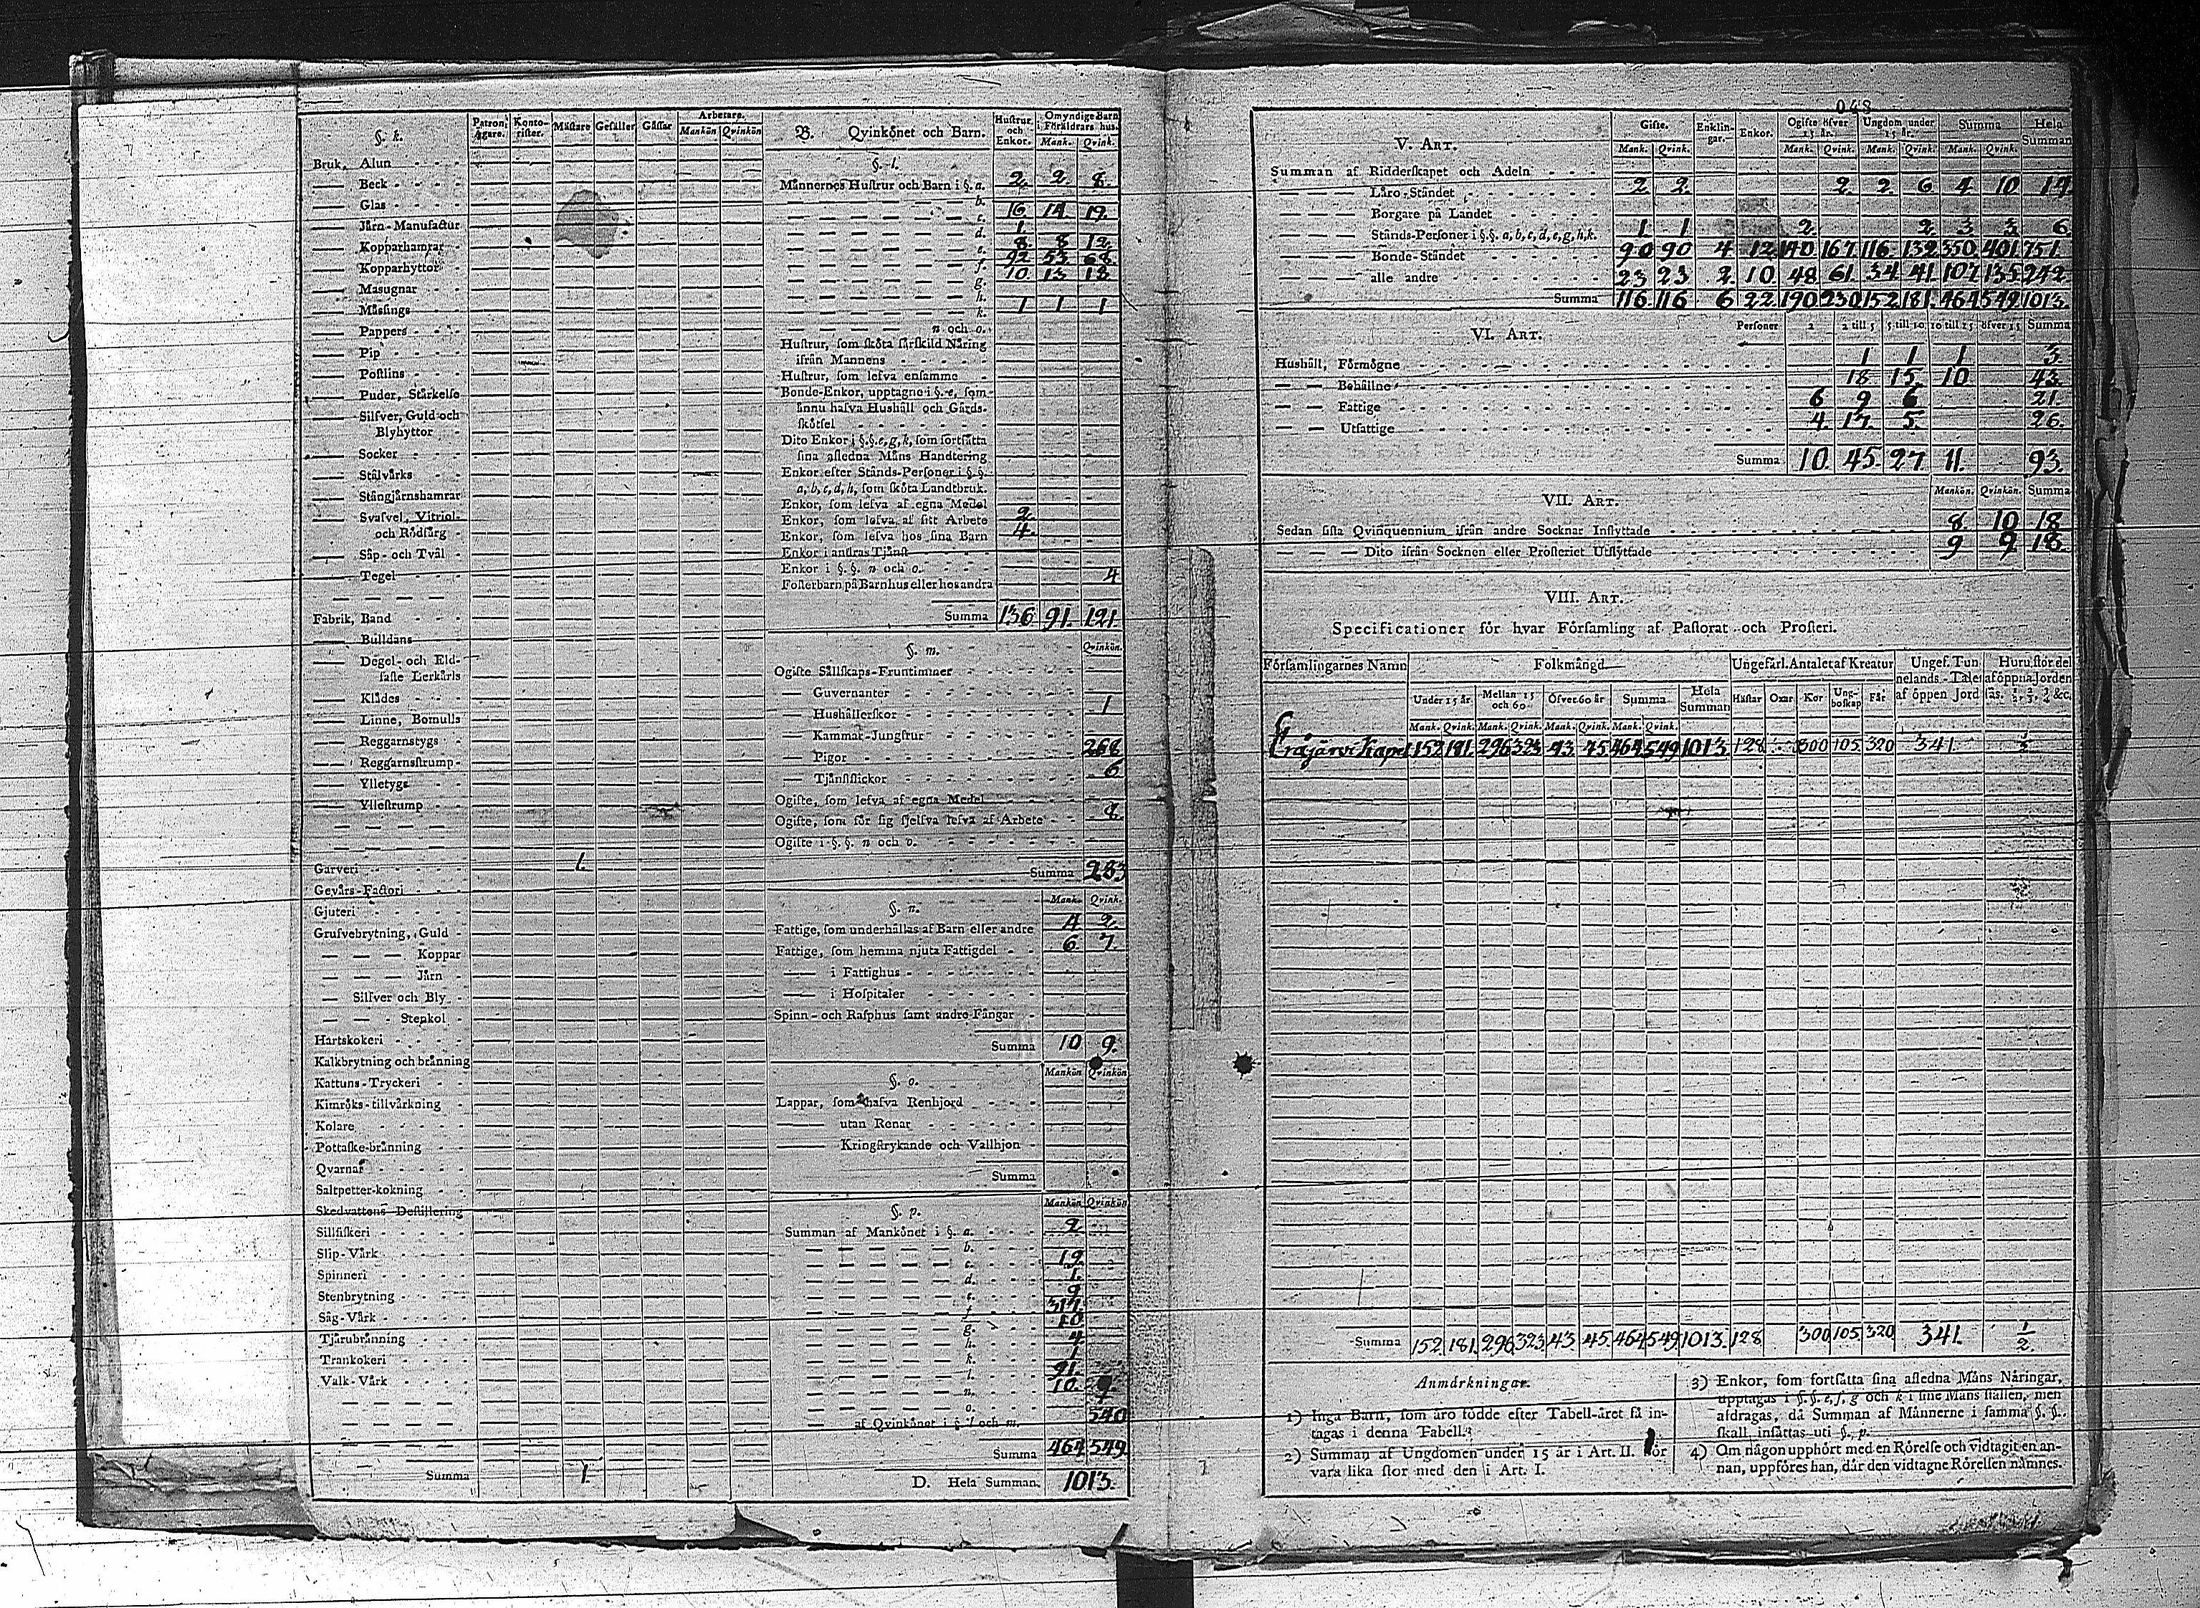 §. k. Patron, Ägare. Konto-rister. Mästare Gesäller Gåssar Arbetare. Mankön Qvinkön
Bruk, Alun
— Beck
— Glas
— Järn-Manufactur
— Kopparhamrar
— Kopparhyttor
— Masugnar
— Mässings
— Pappers
— Pip
— Postlins
— Puder, Stärkelse
— Silfver, Guld och
Blyhyttor
— Socker
— Stålvärks
— Stångjärnshamrar
— Svafvel, Vitriol-
och Rödfärg
— Såp- och Tvål
— Tegel
Fabrik, Band
— Bulldans
— Degel- och Eld-
faste Lerkärls
— Klädes
— Linne, Bomulls
— Reggarnstygs
— Reggarnsstrump
— Ylletygs
— Yllestrump
Garveri 1.
Gevärs-Factori
Gjuteri
Grufvebrytning, Guld
— — — Koppar
— — — Järn
— Silfver och Bly
— — Stenkol
Hartskokeri
Kalkbrytning och bränning
Kattuns-Tryckeri
Kimröks-tillvärkning
Kolare
Pottaske-bränning
Qvarnar
Saltpetter-kokning
Skedvattens-Destillering
Sillfiskeri
Slip-Värk
Spinneri
Stenbrytning
Såg-Värk
Tjärubränning
Trankokeri
Valk-Värk
Summa 1.
B. Qvinkönet och Barn. Hustrur och Enkor. Omyndige Barn i Föräldrars hus. Mank. Qvink.
§. l.
Männernes Hustrur och Barn i §. a. 2. 2. 8.
b.
c. 16 14 19.
d. 1.
e. 8 8 12
f. 92 53 68
g. 10 13 18
h.
k. 1 1 1
n och o.
Hustrur, som sköta särskild Näring
ifrån Mannens
Hustrur, som lefva ensamme
Bonde-Enkor, upptagne i §. e, som
ännu hafva Hushåll och Gårds-
skötsel
Dito Enkor i §.§. e, g, k, som fortsätta
sina afledna Mäns Handtering
Enkor efter Stånds-Personer i §.§.
a, b, c, d, h, som sköta Landtbruk.
Enkor, som lefva af egna Medel
Enkor, som lefva af sitt Arbete 2.
Enkor, som lefva hos sina Barn 4.
Enkor i andras Tjänst
Enkor i §.§. n och o.
Fosterbarn på Barnhus eller hos andra 4
Summa 136 91. 121
§. m. Qvinkön.
Ogifte Sällskaps-Fruntimmer
— Guvernanter
— Hushållerskor 1
— Kammar-Jungfrur
— Pigor 268
— Tjänstflickor 6
Ogifte, som lefva af egna Medel
Ogifte, som för sig sjelfva lefva af Arbete 8.
Ogifte i §.§. n och o.
Summa 283
§. n. Mank. Qvink.
Fattige, som underhållas af Barn eller andre 4 2.
Fattige, som hemma njuta Fattigdel 6 7
— i Fattighus
— i Hospitaler
Spinn- och Rasphus samt andre Fångar
Summa 10 9.
Mankön Qvinkön
§. o.
Lappar, som hafva Renhjord
— utan Renar
— Kringstrykande och Vallhjon
Summa
Mankön Qvinkön
§. p.
Summan af Mankönet i §. a. 2
b.
c. 19
d. 1.
e. 9
f. 317.
g.
h. 4
k. 1
l. 91.
n. 10. 9
o.
af Qvinkönet i §. l och m. 540
Summa 464 549
D. Hela Summan. 1013.
048
V. Art. Gifte. Mank. Qvink. Enklin-gar. Enkor. Ogifte öfver 15 år. Mank. Qvink. Ungdom under 15 år. Mank. Qvink. Summa Mank. Qvink. Hela Summan
Summan af Ridderskapet och Adeln
— — — Läro-Ståndet 2 2. 2 2 6 4 10 14
— — — Borgare på Landet
— — — Stånds-Personer i §.§. a, b, c, d, e, g, h, k. 1. 1 2. 2 3 3 6
— — — Bonde-Ståndet 90 90 4 12 140 167 116 132 350 401 751.
— — — alle andre 23 23 2. 10 48 61. 34 41 107 135 242
Summa 116 116 6 22 190 230 152 181. 464 549 1013.
VI. Art. Personer 2 2 till 5 5 till 10 10 till 15 öfver 15 Summa
Hushåll, Förmögne 1 1 1 3.
— — Behållne 18 15 10 43
— — Fattige 6 9 6 21.
— — Utfattige 4. 17. 5 26.
Summa 10. 45. 27 11. 93.
VII. Art. Mankön. Qvinkön. Summa
Sedan sista Qvinquennium ifrån andre Socknar Inflyttade 8. 10 18
— — — Dito ifrån Socknen eller Prosteriet Utflyttade 9 9 18
VIII. Art.
Specificationer för hvar Församling af Pastorat och Prosteri.
Församlingarnes Namn Folkmängd Ungefärl. Antalet af Kreatur Ungef. Tunnelands-Talet af öppen Jord Huru stor del af öppna Jorden sås. ½, ⅔, ¾ &c.
Under 15 år. Mellan 15 och 60 Öfver 60 år Summa Hela Summan Hästar Oxar Kor Ung-boskap Får
Mank. Qvink. Mank. Qvink. Mank. Qvink. Mank. Qvink.
Eräjärvi Kapel 152 181. 296 323 43. 45 464 549 1013 128 300 105 320 341. 1/2
Summa 152 181. 296 323 43. 45. 464 549 1013. 128 300 105 320 341. 1/2.
Anmärkningar.
1) Inga Barn, som äro födde efter Tabell-året få in-
tagas i denna Tabell.
2) Summan af Ungdomen under 15 år i Art. II. bör
vara lika stor med den i Art. I.
3) Enkor, som fortsätta sina afledna Mäns Näringar,
upptagas i §.§. e, f, g och k i sine Mäns ställen, men
afdragas, då Summan af Männerne i samma §.§.
skall insättas uti §. p.
4) Om någon upphört med en Rörelse och vidtagit en an-
nan, uppföres han, där den vidtagne Rörelsen nämnes.